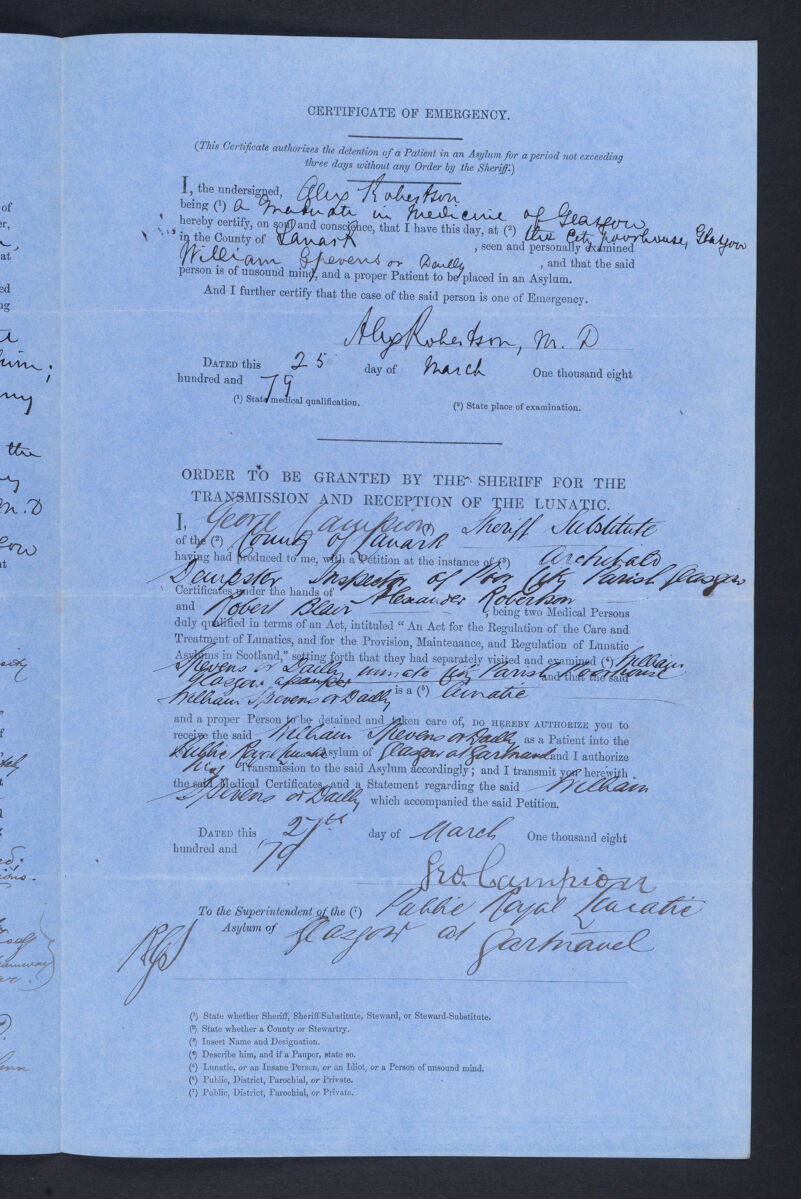 CERTIFICATE OF EMERGENCY.
(This Certificate authorizes the detention of a Patient in an Asylum for a period not exceeding
three days without any Order by the Sheriff.)
I, the undersigned, Alex Robertson
being (¹) a Graduate in Medicine of Glasgow
hereby certify, on soul and conscience, that I have this day, at (²) the City poorhouse, Glasgow
in the County of Lanark, seen and personally examined
William Stevens or Dailly, and that the said
person is of unsound mind, and a proper Patient to be placed in an Asylum.
And I further certify that the case of the said person is one of Emergency.
Alex Robertson, M. D
DATED this 25 day of March One thousand eight
hundred and 79
(¹) State medical qualification. (²) State place of examination.
ORDER TO BE GRANTED BY THE SHERIFF FOR THE
TRANSMISSION AND RECEPTION OF THE LUNATIC.
I, George Campion (¹) Sheriff Substitute
of the (²) County of Lanark
having had produced to me, with a Petition at the instance of (³) Archibald
Dempster Inspector of Poor City Parish Glasgow
Certificates under the hands of Alexander Robertson
and Robert Blair, being two Medical Persons
duly qualified in terms of an Act, intituled “ An Act for the Regulation of the Care and
Treatment of Lunatics, and for the Provision, Maintenance, and Regulation of Lunatic
Asylums in Scotland,” setting forth that they had separately visited and examined (⁴) William
Stevens or Dailly inmate City Parish Poorhouse
Glasgow a pauper and that the said
William Stevens or Dailly is a (⁵) Lunatic
and a proper Person to be detained and taken care of, DO HEREBY AUTHORIZE you to
receive the said William Stevens or Dailly as a Patient into the
Public Royal Lunatic Asylum of Glasgow at Gartnavel and I authorize
his Transmission to the said Asylum accordingly; and I transmit you herewith
the said Medical Certificates, and a Statement regarding the said William
Stevens or Dailly which accompanied the said Petition.
DATED this 27th day of March One thousand eight
hundred and 79
Geo. Campion
To the Superintendent of the (⁷) Public Royal Lunatic
Asylum of Glasgow at Gartnavel
(¹) State whether Sheriff, Sheriff-Substitute, Steward, or Steward-Substitute.
(²) State whether a County or Stewartry.
(³) Insert Name and Designation.
(⁴) Describe him, and if a Pauper, state so.
(⁵) Lunatic, or an Insane Person, or an Idiot, or a Person of unsound mind.
(⁶) Public, District, Parochial, or Private.
(⁷) Public, District, Parochial, or Private.